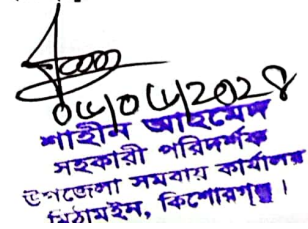 ০৬/০৬/২০২৪
শাহীন আহমেদ
সহকারী পরিদর্শক
উপজেলা সমবায় কার্যালয়
মিঠামইন, কিশোরগঞ্জ।